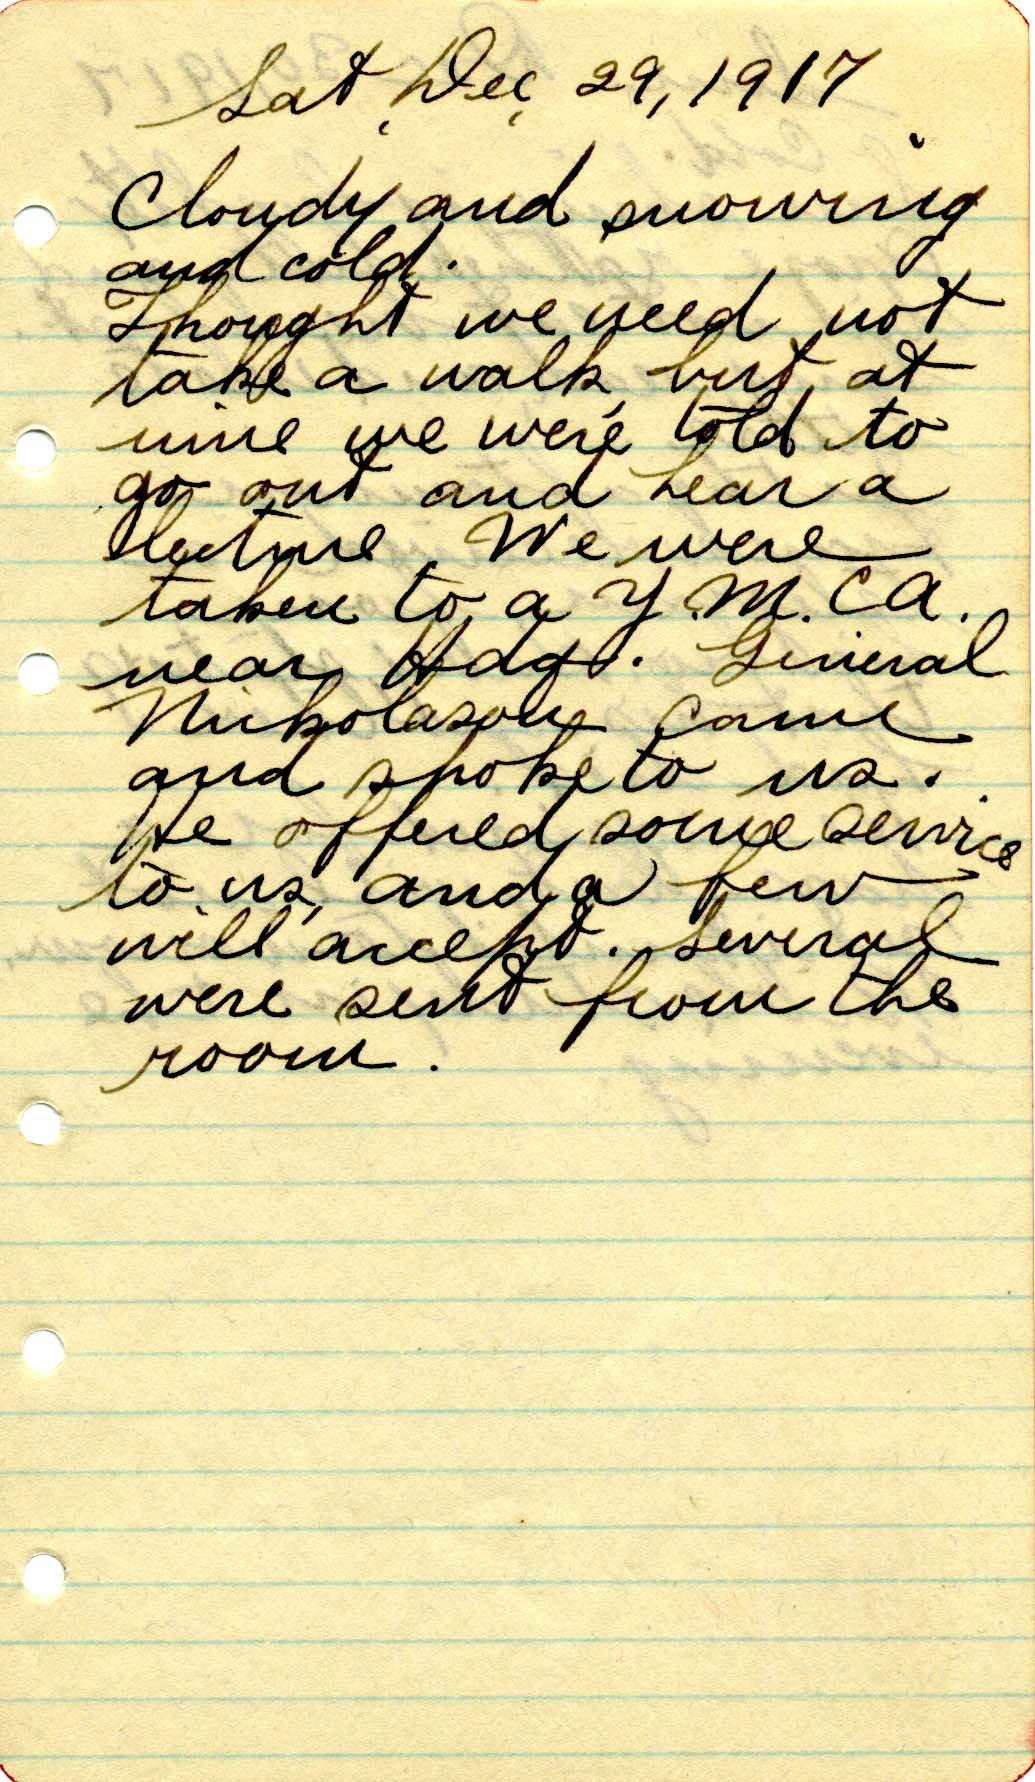 Sat, Dec, 29, 1917
Cloudy and snowing
and cold.
Thought we need not
take a walk, but, at
nine we were told to
go out and hear a
lecture. We were
taken to a Y.M.CA.
near Hdqs. General
Nickolasone came
and spoke to us.
He offered some service
to us, and a few
will accept. Several
were sent from the
room.